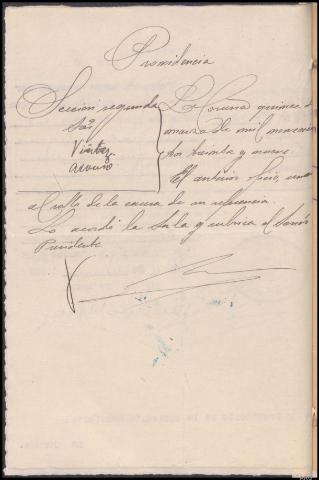 Providencia
Seccion segunda
Sres
Viñtez
Asouro
La Coruña quince de
marzo de mil novecien
tos treinta y nueve.
El anterior oficio, una
al rollo de la causa de su referencia.
Lo acordó la Sala y rubrica el Señor
Presidente